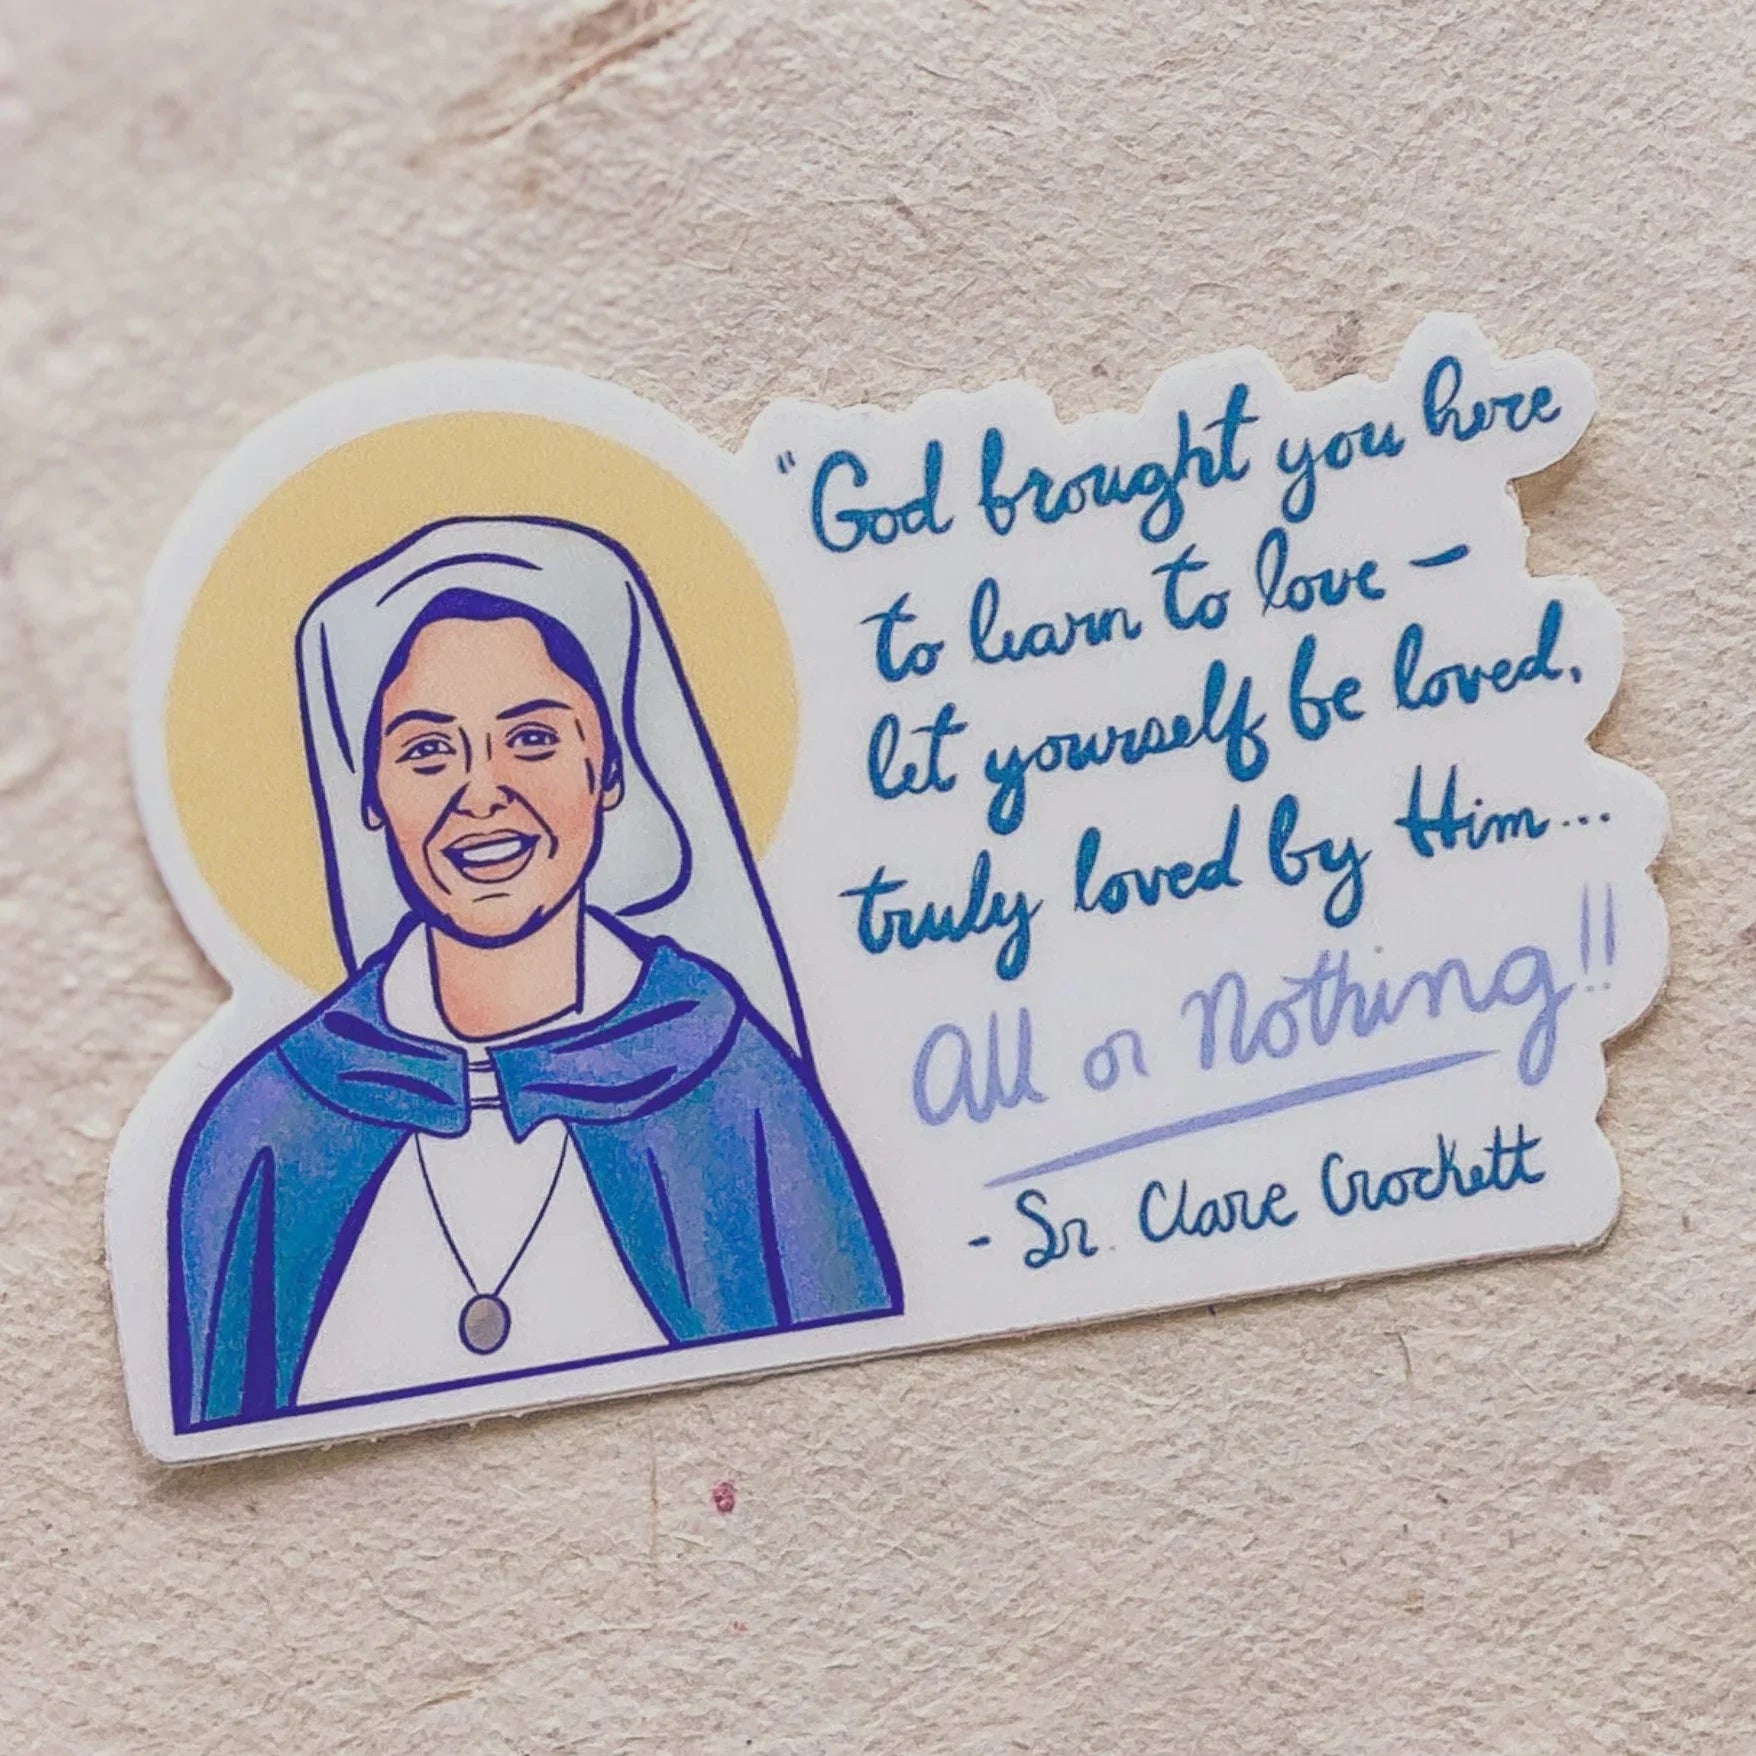 "God brought you here
to learn to love –
let yourself be loved,
truly loved by Him...
All or Nothing!!
- Sr. Clare Crockett